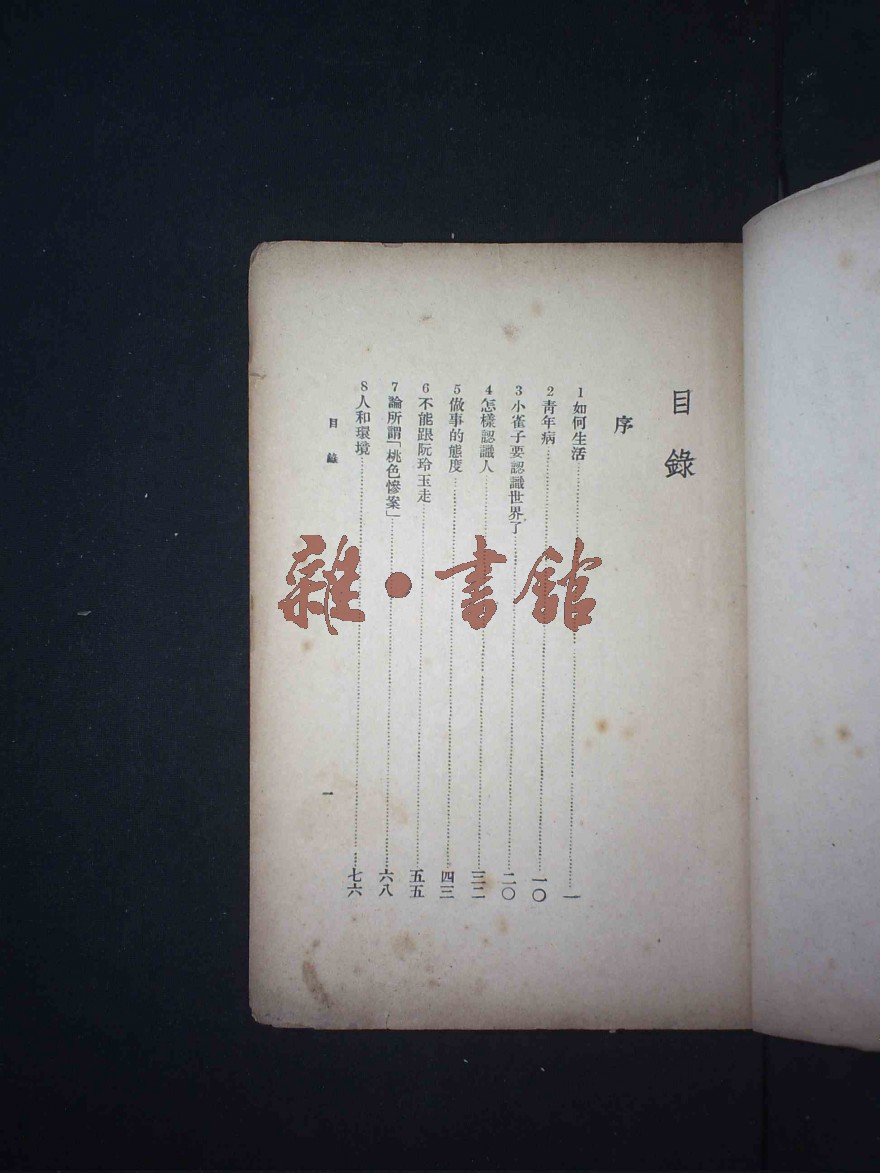 目錄
序
1如何生活……一
2青年病……一〇
3小雀子要認識世界了……二〇
4怎樣認識人……三二
5做事的態度……四三
6不能跟阮玲玉走……五五
7論所謂「桃色慘案」……六八
8人和環境……七六
目錄
一
雜·書館